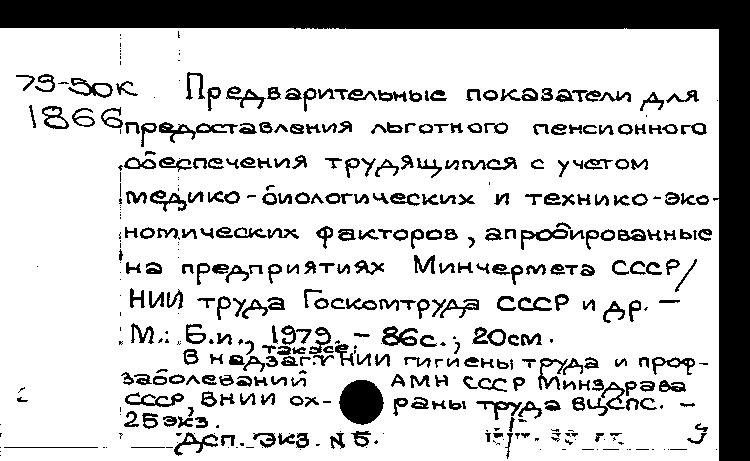 79-50к Предварительные показатели для
1866 предоставления льготного пенсионного
обеспечения трудящимся с учетом
медико-биологических и технико-эко-
номических факторов, апробированные
на предприятиях Минчермета СССР/
НИИ труда Госкомтруда СССР и др. –
М.: Б.и., 1979. – 86с.; 20см.
также:
В надзаг.: НИИ гигиены труда и проф-
заболеваний АМН СССР Минздрава
СССР, ВНИИ ох- раны труда ВЦСПС. –
25экз.
Дсп. Экз. N 5.